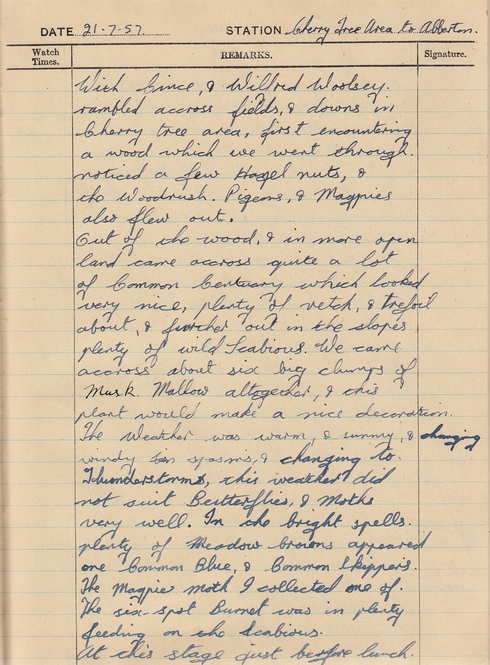 DATE 21-7-57. STATION Cherry Tree Area to Abberton.
Watch Times. REMARKS. Signature.
With Cince, & Wilfred Woolsey.
rambled accross fields, & downs in
Cherry tree area, first encountering
a wood which we went through.
noticed a few Hazel nuts, &
the Woodrush. Pigeons, & Magpies
also flew out.
Out of the wood, & in more open
land came accross quite a lot
of Common Centuary which looked
very nice, plenty of vetch, & trefoil
about, & further out in the slopes
plenty of wild Scabious. We came
accross about six big clumps of
Musk Mallow altogether, & this
plant would make a nice decoration.
The Weather was warm, & sunny, & changing
windy in spasms, & changing to.
Thunderstorms, this weather did
not suit Beutterflies, & Moths
very well. In the bright spells.
plenty of Meadow browns appeared
one Common Blue, & Common Skippers.
The Magpie moth I collected one of.
The six-spot Burnet was in plenty
feeding on the Scabious.
At this stage just before lunch.